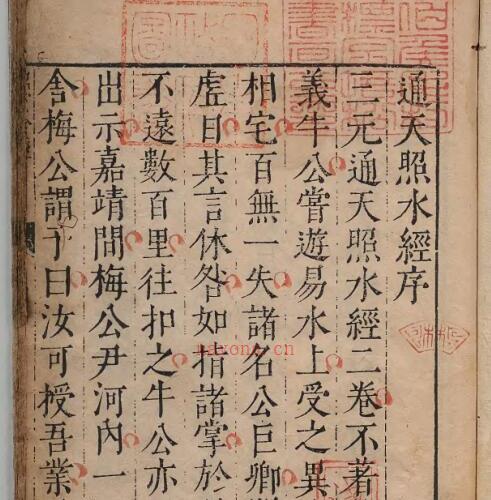 通天照水經序
三元通天照水經二卷不著
義牛公嘗遊易水上受之異
相宅百無一失諸名公巨卿
虛日其言休咎如指諸掌於
不遠數百里往扣之牛公亦
出示嘉靖間梅公尹河內一
舍梅公謂予曰汝可授吾業